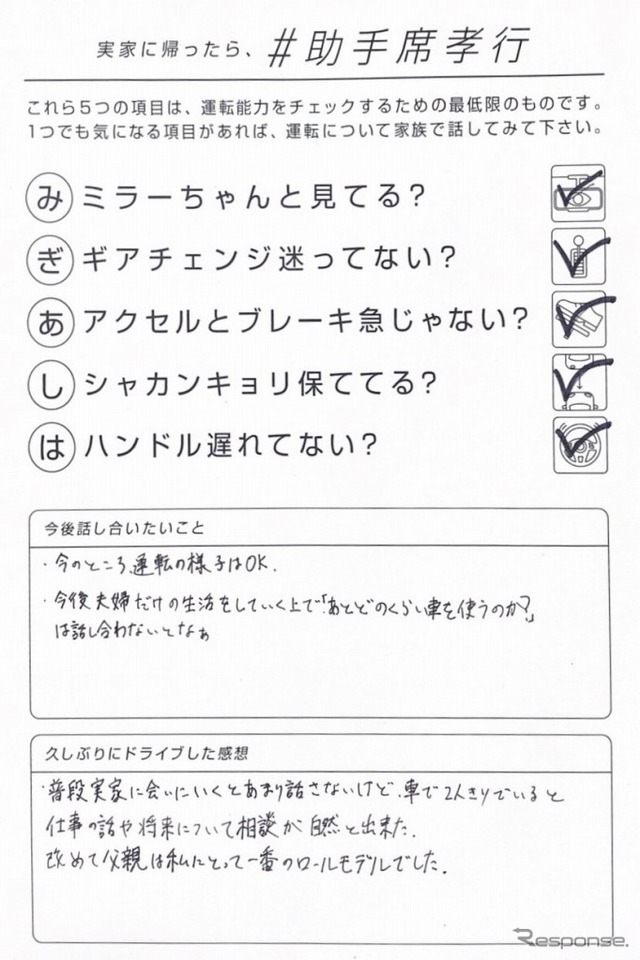 実家に帰ったら、#助手席孝行
これら5つの項目は、運転能力をチェックするための最低限のものです。
1つでも気になる項目があれば、運転について家族で話してみて下さい。
み ミラーちゃんと見てる?
ぎ ギアチェンジ迷ってない?
あ アクセルとブレーキ急じゃない?
し シャカンキョリ保ててる?
は ハンドル遅れてない?
今後話し合いたいこと
・今のところ運転の様子はOK.
・今後夫婦だけの生活をしていく上で「あとどのくらい車を使うのか?」
は話し合わないとなぁ
久しぶりにドライブした感想
・普段実家に会いにいくとあまり話さないけど、車で2人きりでいると
仕事の話や将来について相談が自然と出来た.
改めて父親は私にとって一番のロールモデルでした.
Response.